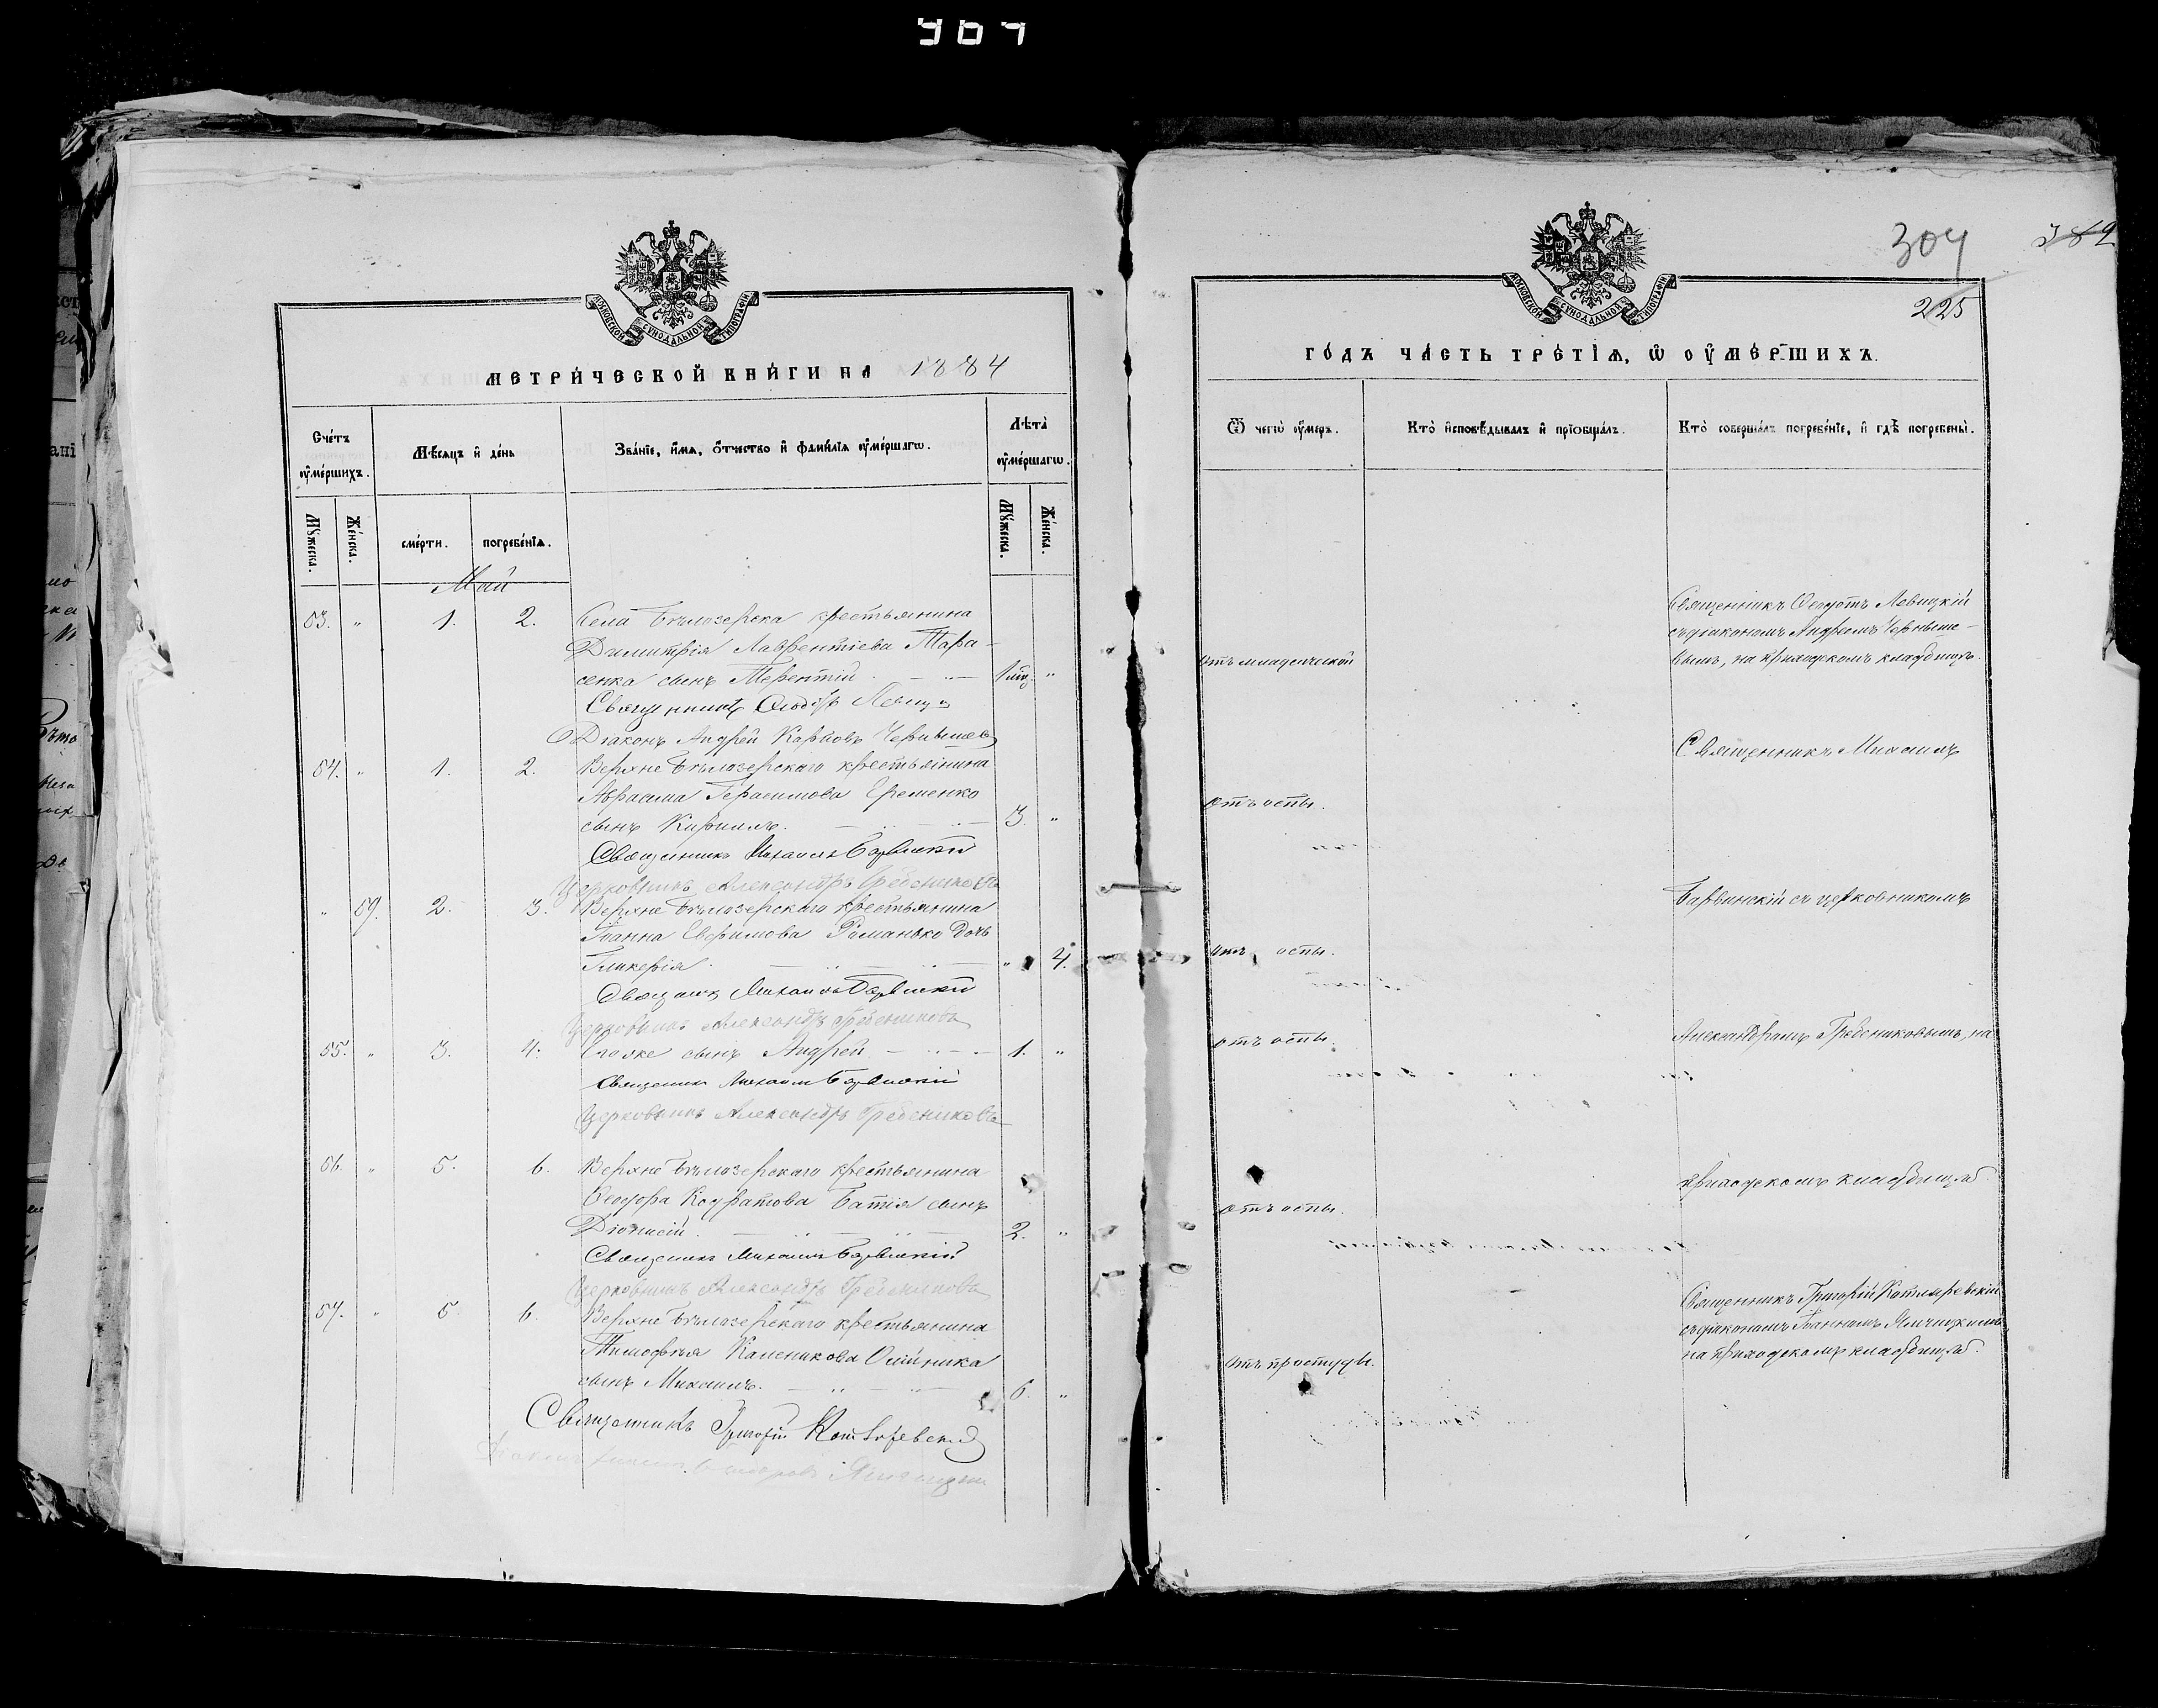 304
382
225
МОСКОВСКОЙ СѴНОДАЛЬНОЙ ТИПОГРАФІИ
МЕТРИ́ЧЕСКОЙ КНИ́ГИ НА 1884
Сче́тъ ᲂу҆ме́ршихъ.
Мѣ́сяцъ и҆ де́нь
Зва́нїе, и҆́мѧ, ѻ҆́тчество и҆ фами́лїѧ ᲂу҆ме́ршагѡ.
Лѣ́та ᲂу҆ме́ршагѡ.
Мꙋ́жеска.
Же́нска.
сме́рти.
погребе́нїѧ.
Мꙋ́жеска.
Же́нска.
Май
53. " 1. 2. Села Бѣлозерска крестьянина
Димитрія Лаврентіева Тара-
сенка сынъ Терентій 1 мѣс. "
Священникъ Ѳеодотъ Левицкій
Діаконъ Андрей Карповъ Чернышевъ
54. " 1. 2. Верхне Бѣлозерскаго крестьянина
Аврама Герасимова Еременко
сынъ Кириллъ. 3. "
Священникъ Михаилъ Барвинскій
Церковникъ Александръ Гребениковъ
" 59. 2. 3. Верхне Бѣлозерскаго крестьянина
Іоанна Евфимова Романько дочь
Гликерія " 4.
Священникъ Михаилъ Барвинскій
Церковникъ Александръ Гребениковъ
55. " 3. 4. Егоже сынъ Андрей 1. "
Священникъ Михаилъ Барвинскій
Церковникъ Александръ Гребениковъ
56. " 5. 6. Верхне Бѣлозерскаго крестьянина
Ѳеодора Кодратова Батія сынъ
Діонисій. 2. "
Священникъ Михаилъ Барвинскій
Церковникъ Александръ Гребениковъ
57. " 5. 6. Верхне Бѣлозерскаго крестьянина
Тимофѣя Каленикова Олійника
сынъ Михаилъ. 6. "
Священникъ Григорій Котляревскій
МОСКОВСКОЙ СѴНОДАЛЬНОЙ ТИПОГРАФІИ
ГО́ДЪ ЧА́СТЬ ТРЕ́ТЇѦ, Ѡ҆ ОУ҆МЕ́РШИХЪ.
Ѿ чегѡ̀ ᲂу҆́меръ.
Кто̀ и҆сповѣ́дывалъ и҆ прїѻбща́лъ.
Кто̀ соверша́лъ погребе́нїе, и҆ гдѣ̀ погребены̀.
Священникъ Ѳеодотъ Левицкій
съ діакономъ Андреемъ Черныше-
вымъ, на приходскомъ кладбищѣ.
отъ младенческой
Священникъ Михаилъ
отъ оспы.
Барвинскій съ церковникомъ
отъ оспы.
Александромъ Гребениковымъ, на
отъ оспы.
приходскомъ кладбищѣ.
отъ оспы.
Священникъ Григорій Котляревскій
съ діакономъ Іоанномъ
на приходскомъ кладбищѣ.
отъ простуды.